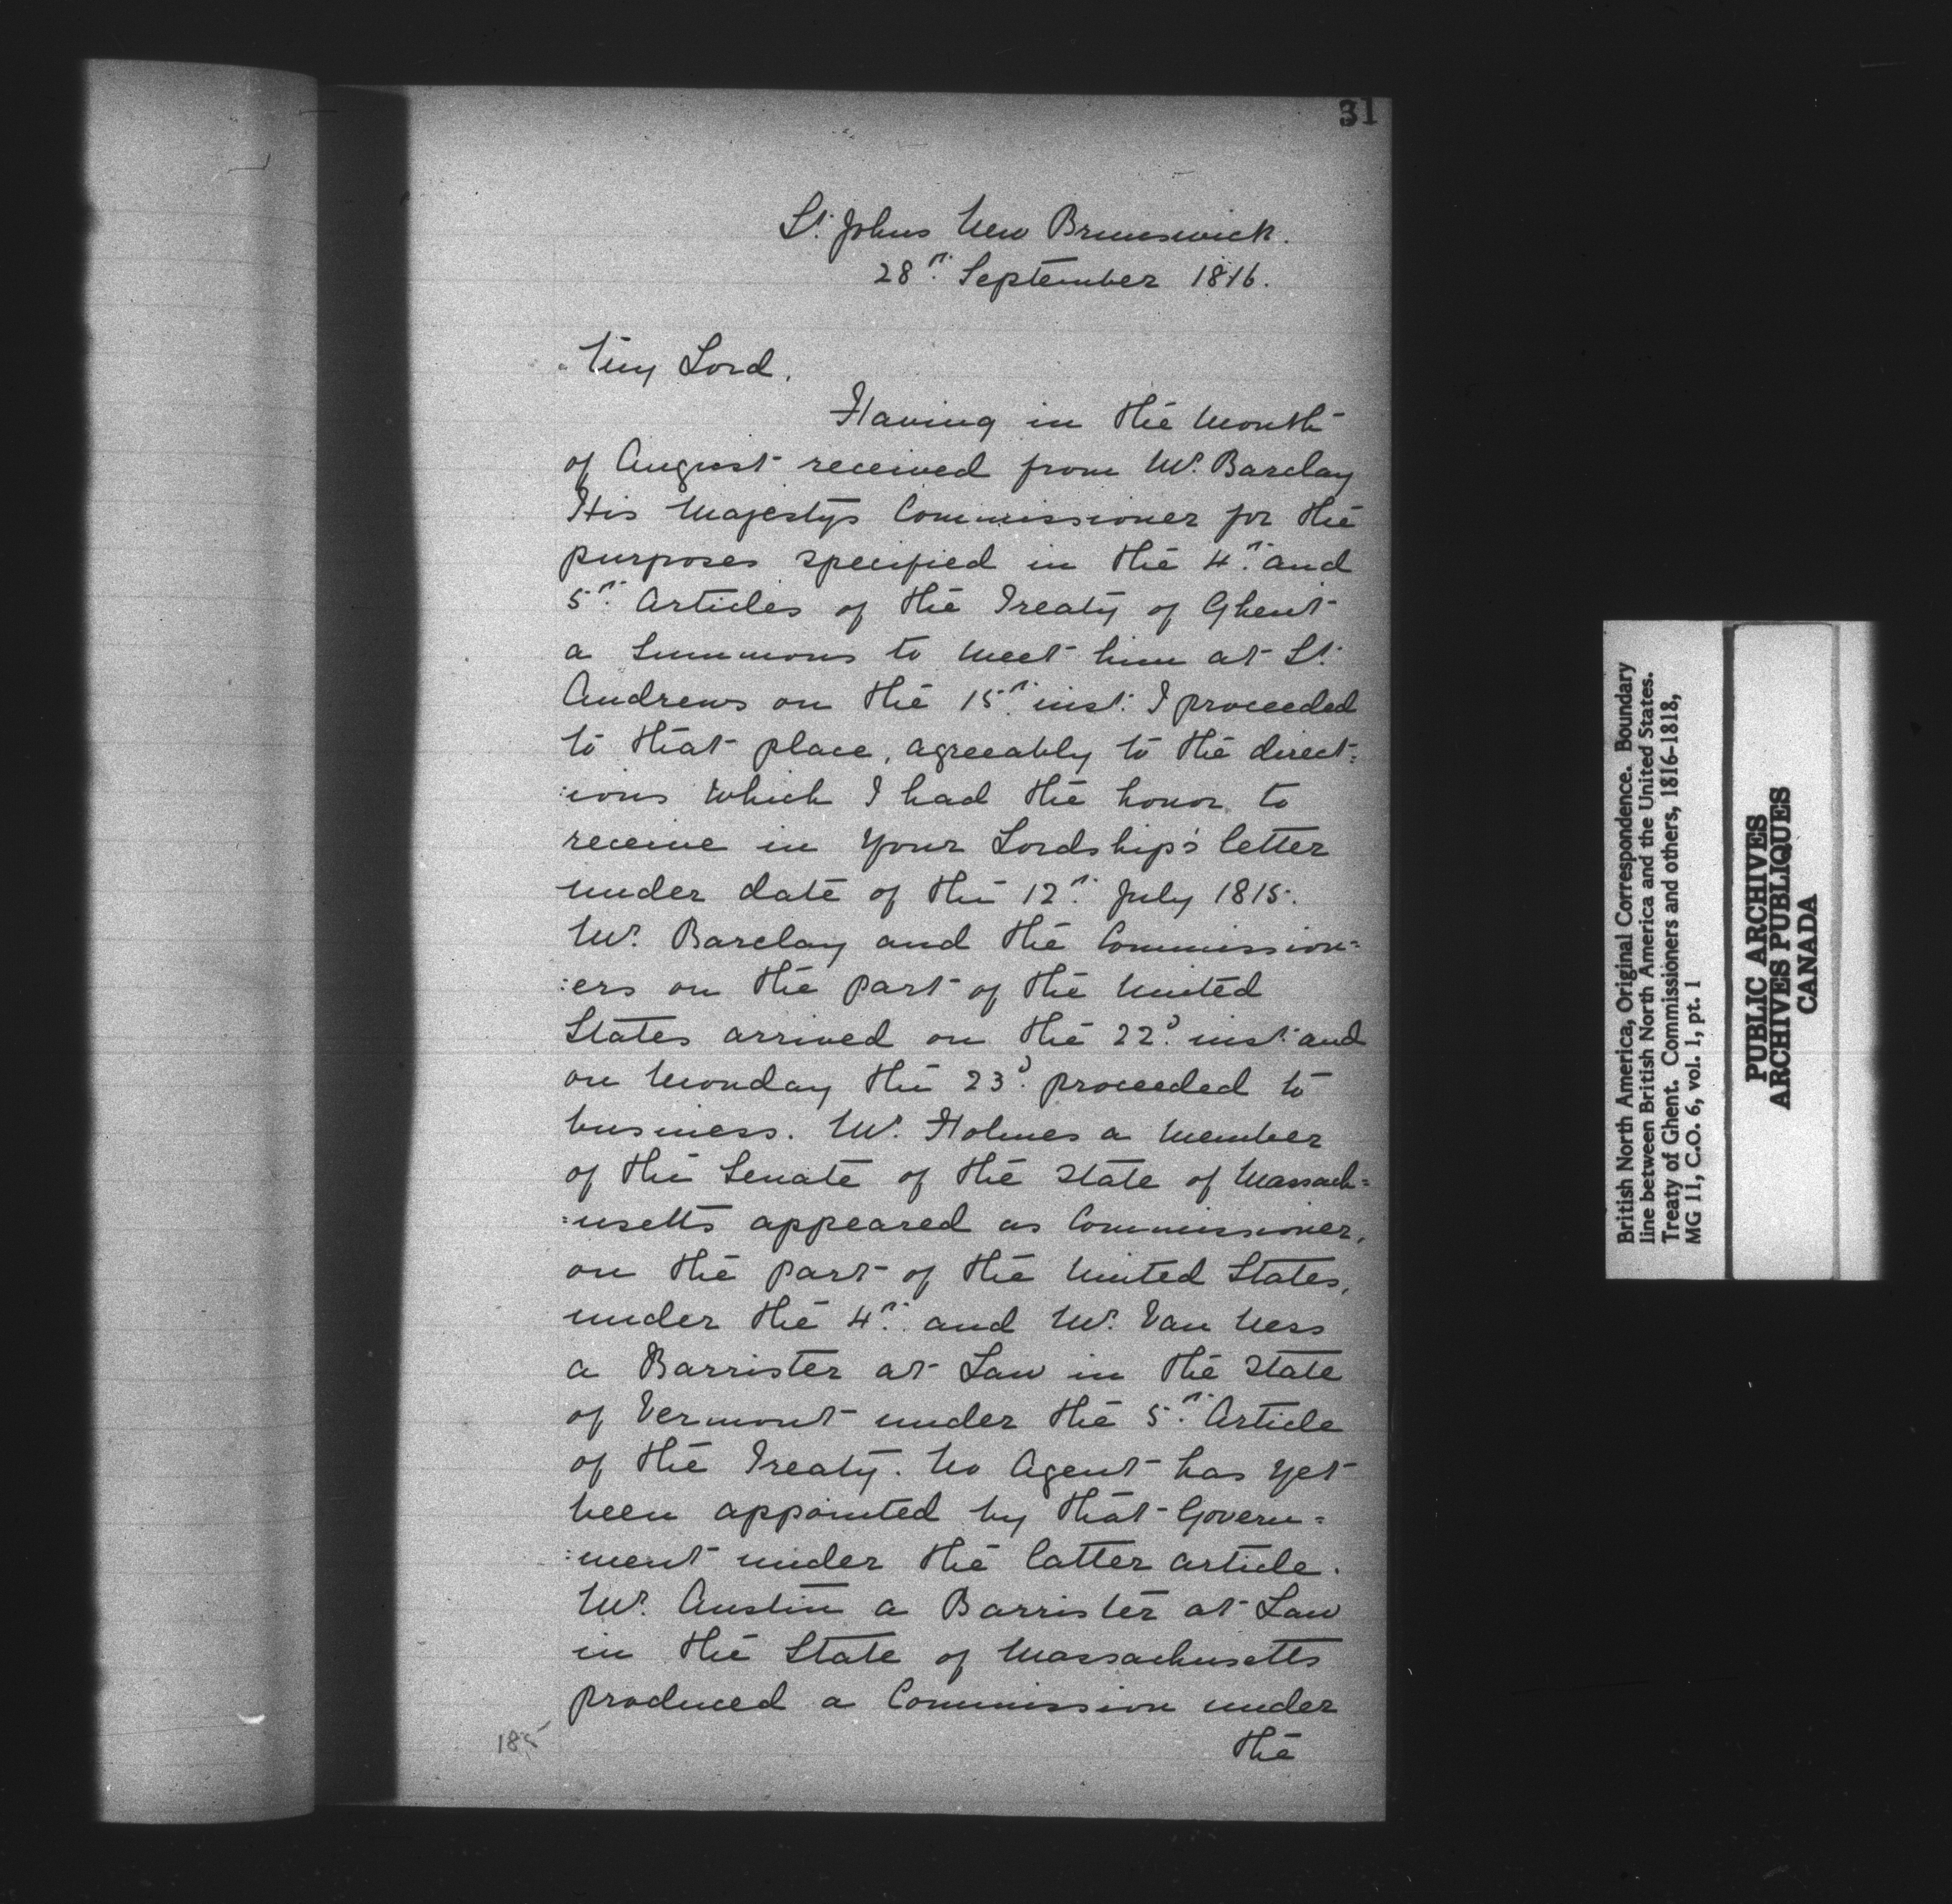 31
St. Johns New Brunswick.
28th. September 1816.
My Lord.
Having in the Month
of August received from Mr. Barclay
His Majestys Commissioner for the
purposes specified in the 4th. and
5th. Articles of the Treaty of Ghent
a Summons to meet him at St.
Andrews on the 15th. inst. I proceeded
to that place, agreeably to the direct=
:ions which I had the honor to
receive in Your Lordship's letter
under date of the 12th. July 1815.
Mr. Barclay and the Commission=
:ers on the part of the United
States arrived on the 22d. inst. and
on Monday the 23d. proceeded to
business. Mr. Holmes a Member
of the Senate of the State of Massach=
=usetts appeared as Commissioner,
on the part of the United States,
under the 4th. and Mr. Van Ness
a Barrister at Law in the State
of Vermont under the 5th. Article
of the Treaty. No Agent has yet
been appointed by that Govern=
:ment under the latter article.
Mr. Austin a Barrister at Law
in the State of Massachusetts
produced a Commission under
the
185
British North America, Original Correspondence. Boundary
line between British North America and the United States.
Treaty of Ghent. Commissioners and others, 1816-1818,
MG 11, C.O. 6, vol. 1, pt. 1
PUBLIC ARCHIVES
ARCHIVES PUBLIQUES
CANADA